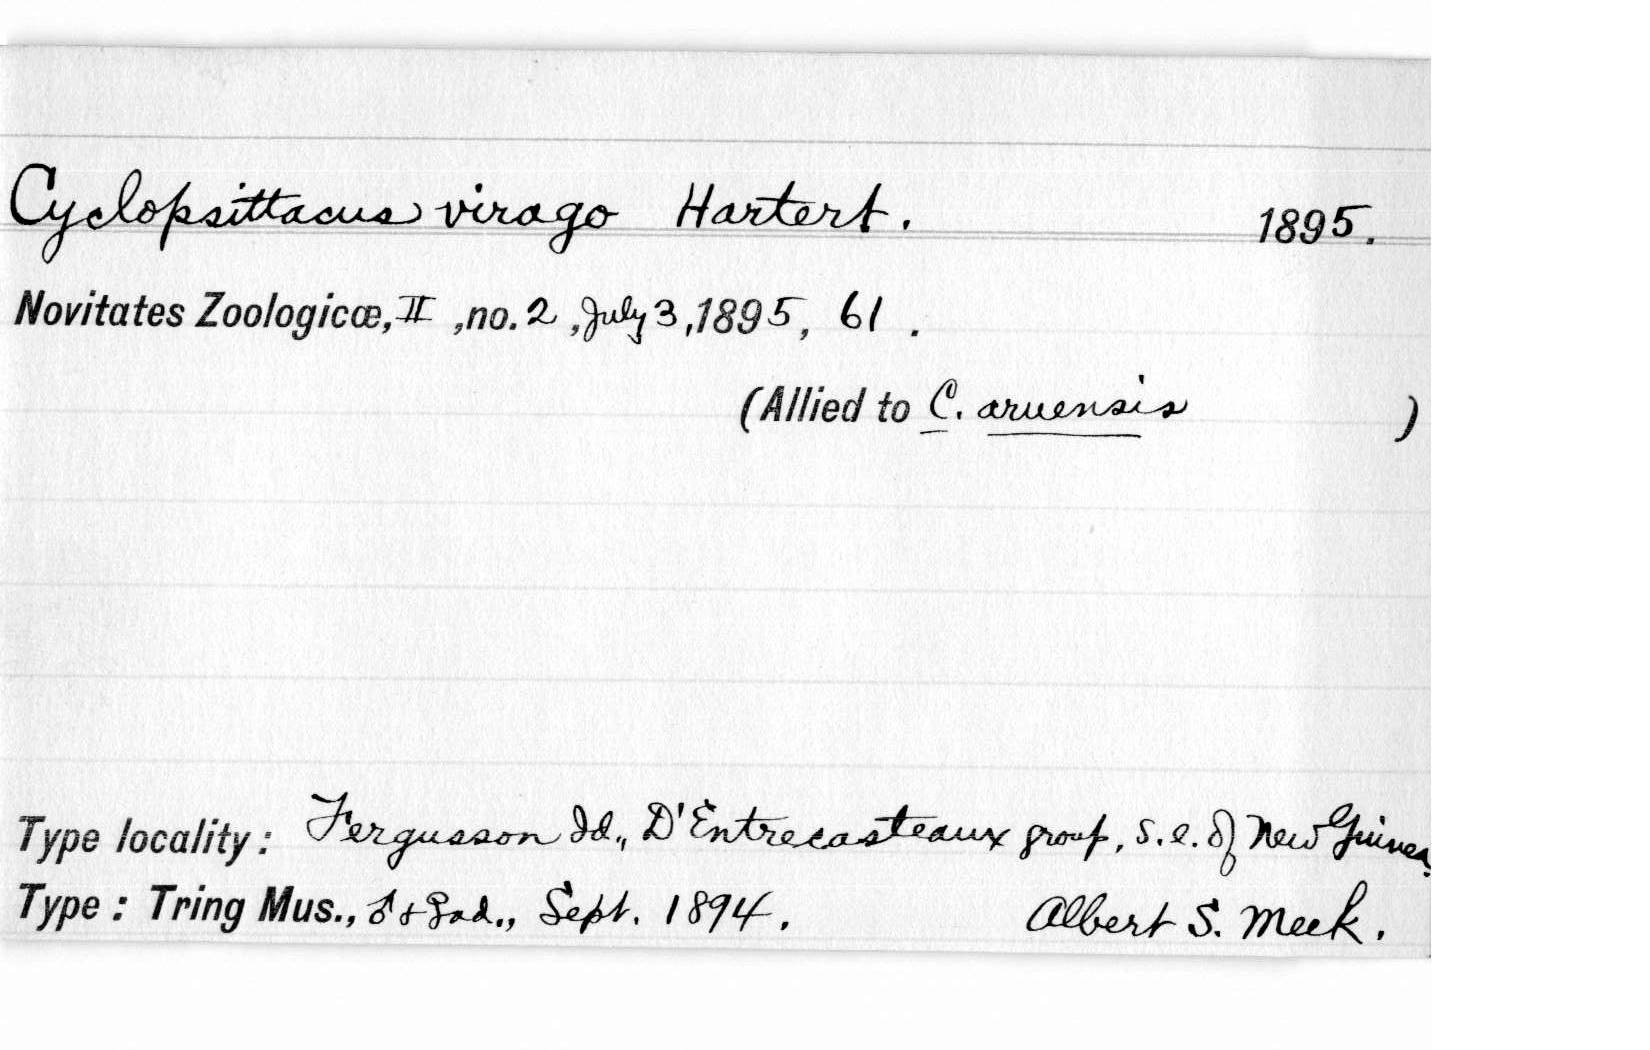 Cyclopsittacus virago Hartert. 1895.
Novitates Zoologicæ, II, no. 2, July 3, 1895, 61.
(Allied to C. aruensis )
Type locality: Fergusson Id., D'Entrecasteaux group, s.e. of New Guinea.
Type: Tring Mus., ♂ + ♀ ad., Sept. 1894. Albert S. Meek.